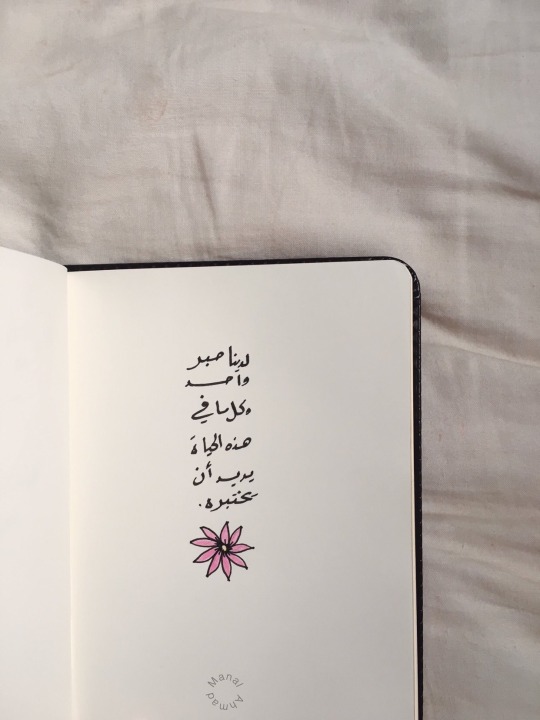 لدينا صبر
واحد
وكل ما في
هذه الحياة
يريد أن
يختبره.
Manal Ahmad